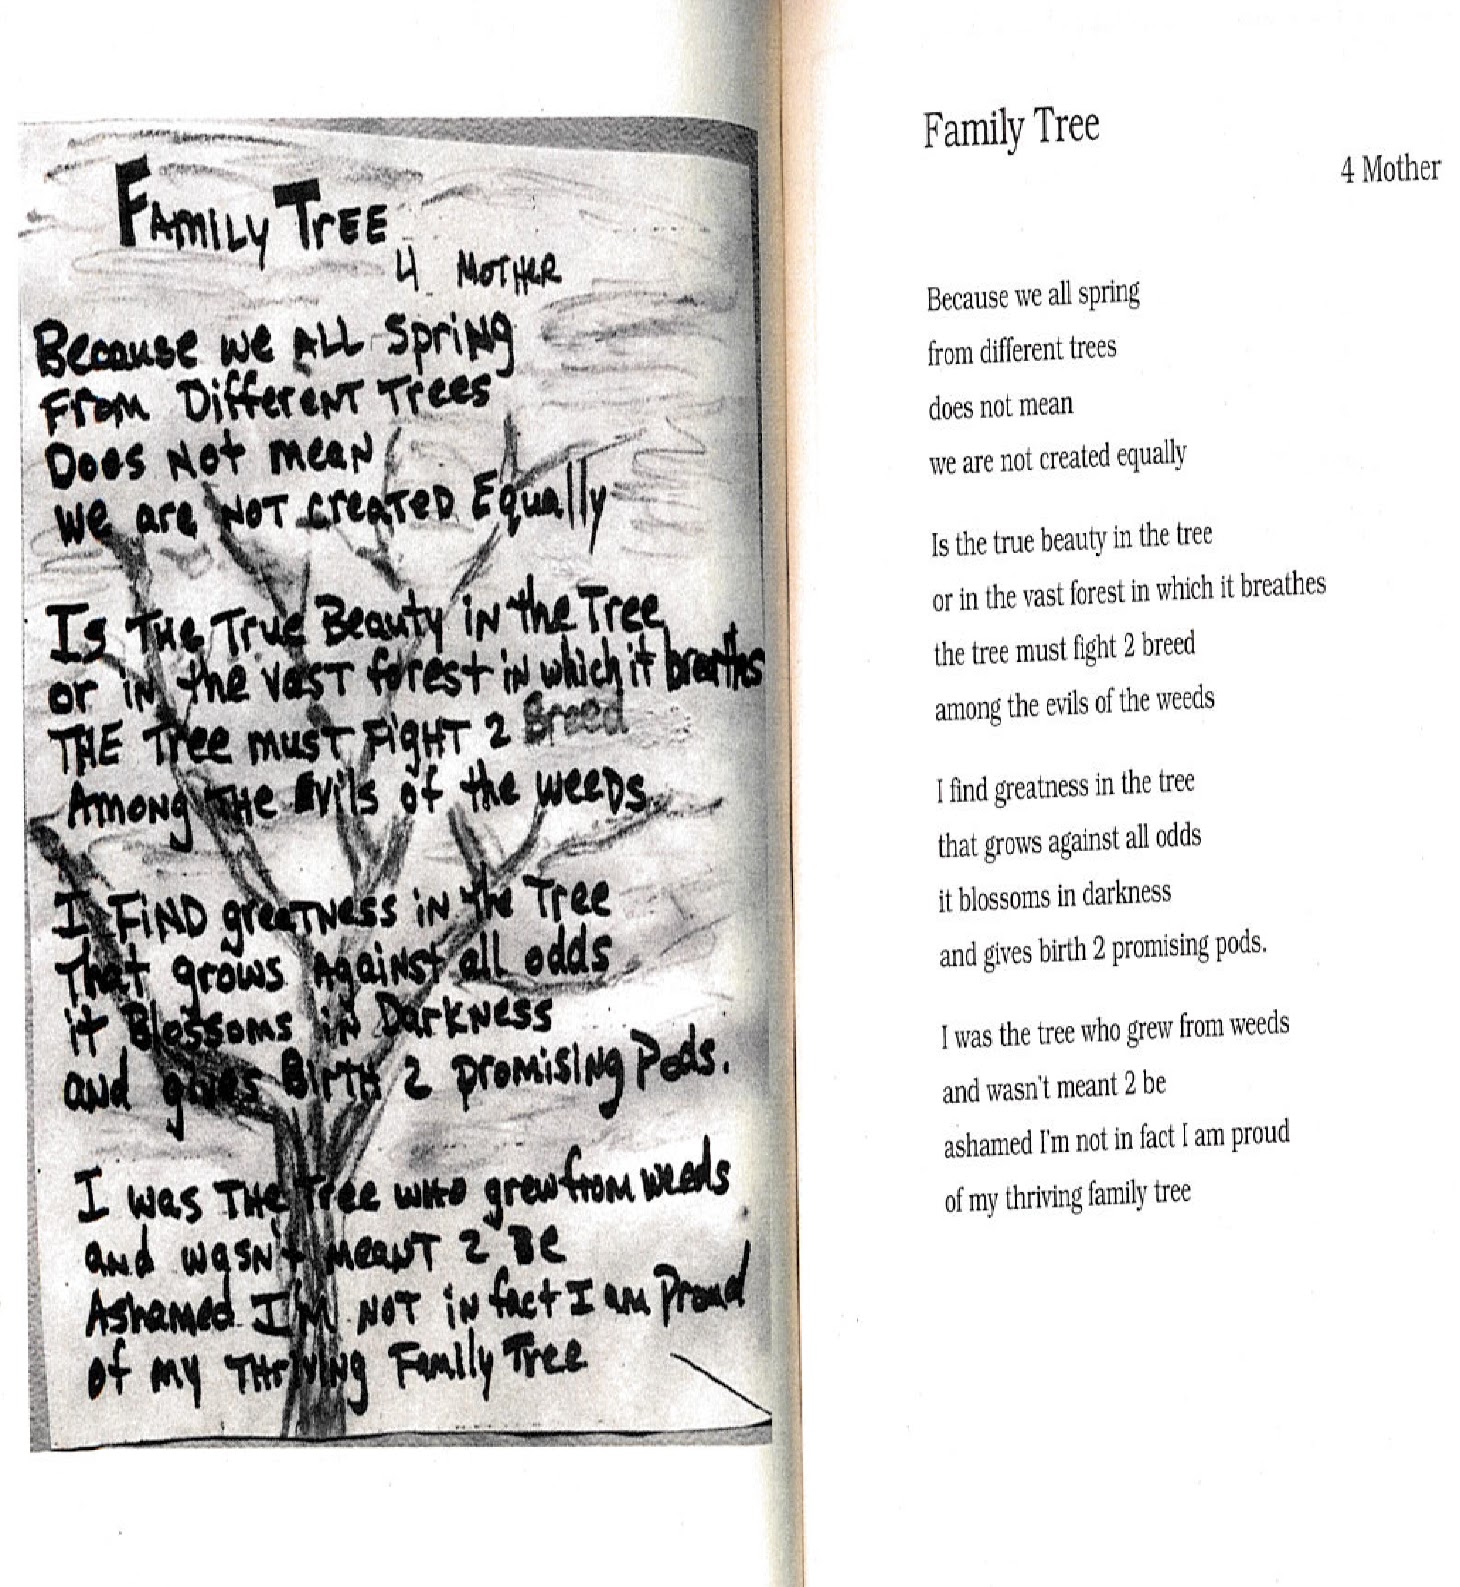 FAMILY TREE
4 MOTHER
Because we ALL Spring
From Different Trees
Does Not mean
we are NOT created Equally
Is The True Beauty in the Tree
or in the vast forest in which it breaths
THE Tree must Fight 2 Breed
Among The Evils of the weeds
I Find greatness in the Tree
That grows Against all odds
it Blossoms in Darkness
and gives Birth 2 promising Pods.
I was The Tree who grew from weeds
and wasn't meant 2 Be
Ashamed I'm NOT in fact I am Proud
of my Thriving Family Tree
Family Tree
4 Mother
Because we all spring
from different trees
does not mean
we are not created equally
Is the true beauty in the tree
or in the vast forest in which it breathes
the tree must fight 2 breed
among the evils of the weeds
I find greatness in the tree
that grows against all odds
it blossoms in darkness
and gives birth 2 promising pods.
I was the tree who grew from weeds
and wasn't meant 2 be
ashamed I'm not in fact I am proud
of my thriving family tree